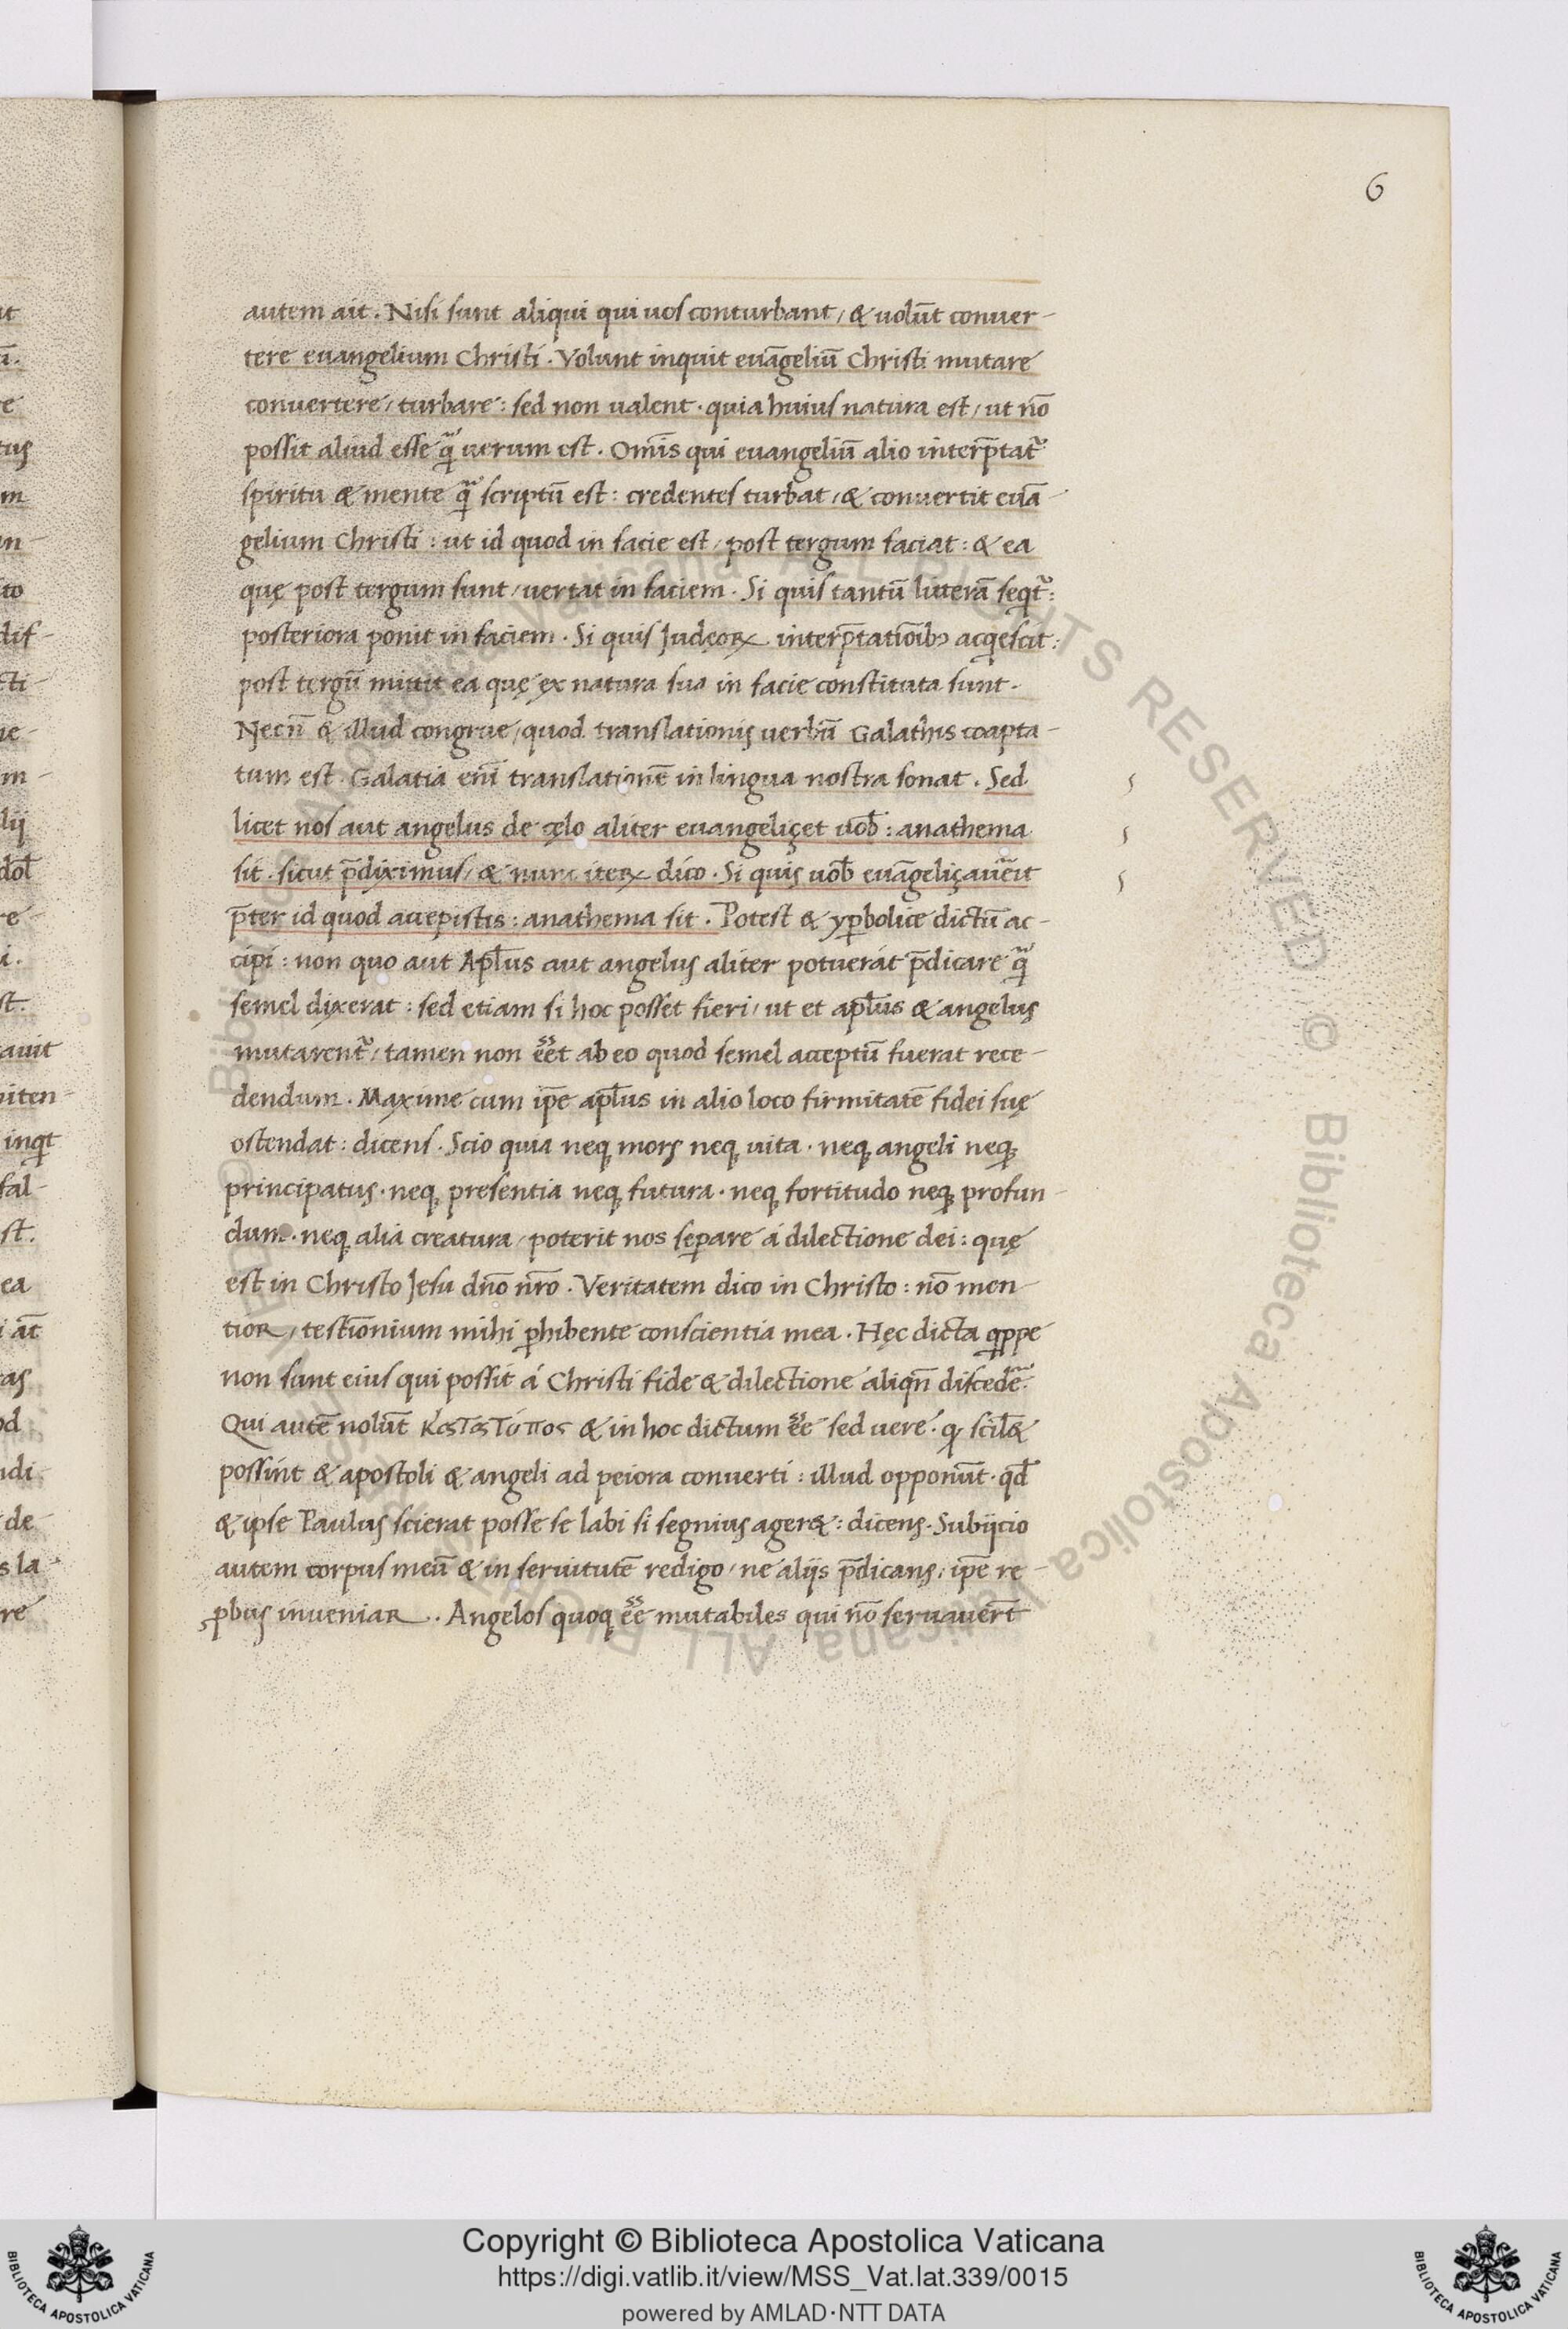 6
autem ait. Nisi sunt aliqui qui uos conturbant, & uolūt conuer-
tere euangelium Christi. Volunt inquit euāgeliū Christi mutare
conuertere, turbare: sed non ualent. quia huius natura est, ut nō
possit aliud esse q̄ uerum est. Om̄is qui euangeliū alio interp̄tat᷑
spiritu & mente q̄ scriptū est: credentes turbat, & conuertit euā
gelium Christi: ut id quod in facie est, post tergum faciat: & ea
quę post tergum sunt, uertat in faciem. Si quis tantū litterā seqt᷑:
posteriora ponit in faciem. Si quis Judęoꝝ interp̄tatiōibꝰ acqescit:
post tergū mittit ea quę ex natura sua in facie constituta sunt.
Necn̄ & illud congrue, quod translationis uerbū Galathis coapta-
tum est. Galatia em̄ translationē in lingua nostra sonat. Sed
licet nos aut angelus de cęlo aliter euangeliçet uob̄: anathema
sit. sicut p̄diximus, & nunc iteꝝ dico. Si quis uob̄ euāgeliçauēit
p̄ter id quod accepistis: anathema sit. Potest & yꝑbolice dictū ac-
cipi: non quo aut Apl̄us aut angelus aliter potuerát p̄dicare q̄
semel dixerat: sed etiam si hoc posset fieri, ut et apl̄us & angelus
mutarent᷑, tamen non eēt ab eo quod semel acceptū fuerat rece-
dendum. Maxime cum ip̄e apl̄us in alio loco firmitatē fidei suę
ostendat: dicens. Scio quia neqꝫ mors neqꝫ uita. neqꝫ angeli neqꝫ
principatus. neqꝫ presentia neqꝫ futura. neqꝫ fortitudo neqꝫ profun-
dum. neqꝫ alia creatura, poterit nos seꝑare á dilectione dei: quę
est in Christo Jesu dn̄o nr̄o. Veritatem dico in Christo: nō men-
tior, testīonium mihi ꝑhibente conscientia mea. Hęc dicta qppe
non sunt eius qui possit á Christi fide & dilectione aliqn̄ discedē.
Qui autē nolūt κατατύπος & in hoc dictum eē sed uere. ꝙ scil&
possint & apostoli & angeli ad peiora conuerti: illud opponūt. qd̄
& ipse Paulus scierat posse se labi si segnius ager&: dicens. Subijcio
autem corpus meū & in seruitutē redigo, ne alijs p̄dicans, ip̄e re-
ꝓbus inueniar. Angelos quoqꝫ eē mutabiles qui nō seruauer̄t
Copyright © Biblioteca Apostolica Vaticana
https://digi.vatlib.it/view/MSS_Vat.lat.339/0015
powered by AMLAD·NTT DATA